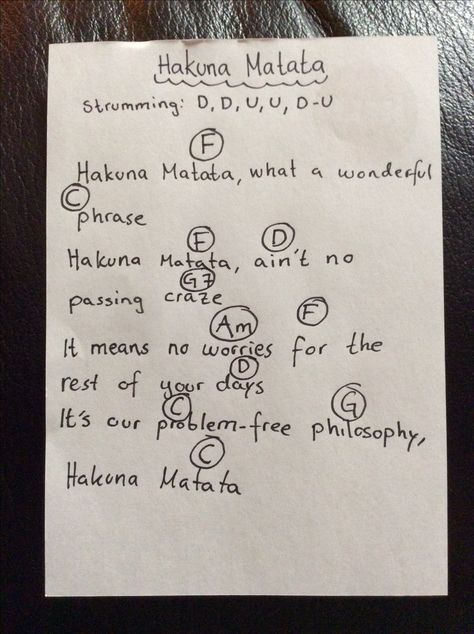 Hakuna Matata
Strumming: D, D, U, U, D-U
F
Hakuna Matata, what a wonderful
C
phrase
F D
Hakuna Matata, ain't no
G7
passing craze
Am F
It means no worries for the
D
rest of your days
C G
It's our problem-free philosophy,
C
Hakuna Matata